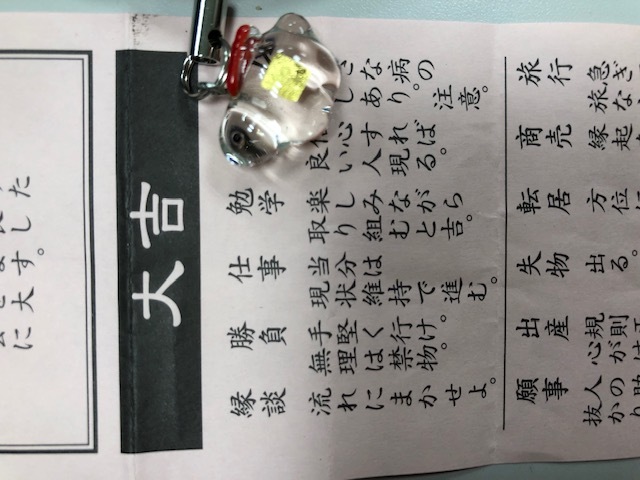 した
し
す。
を大
に
大吉
さな病の
しあり。注意。
心すれば
良い人現る。
勉学
楽しみながら
取り組むと吉。
仕事
当分は
現状維持で進む。
勝負
手堅く行け。
無理は禁物。
縁談
流れにまかせよ。
旅行
急ぎ
旅な
商売
縁起
転居
方位
失物
出る。
出産
規則
心が
願事
人の
抜か